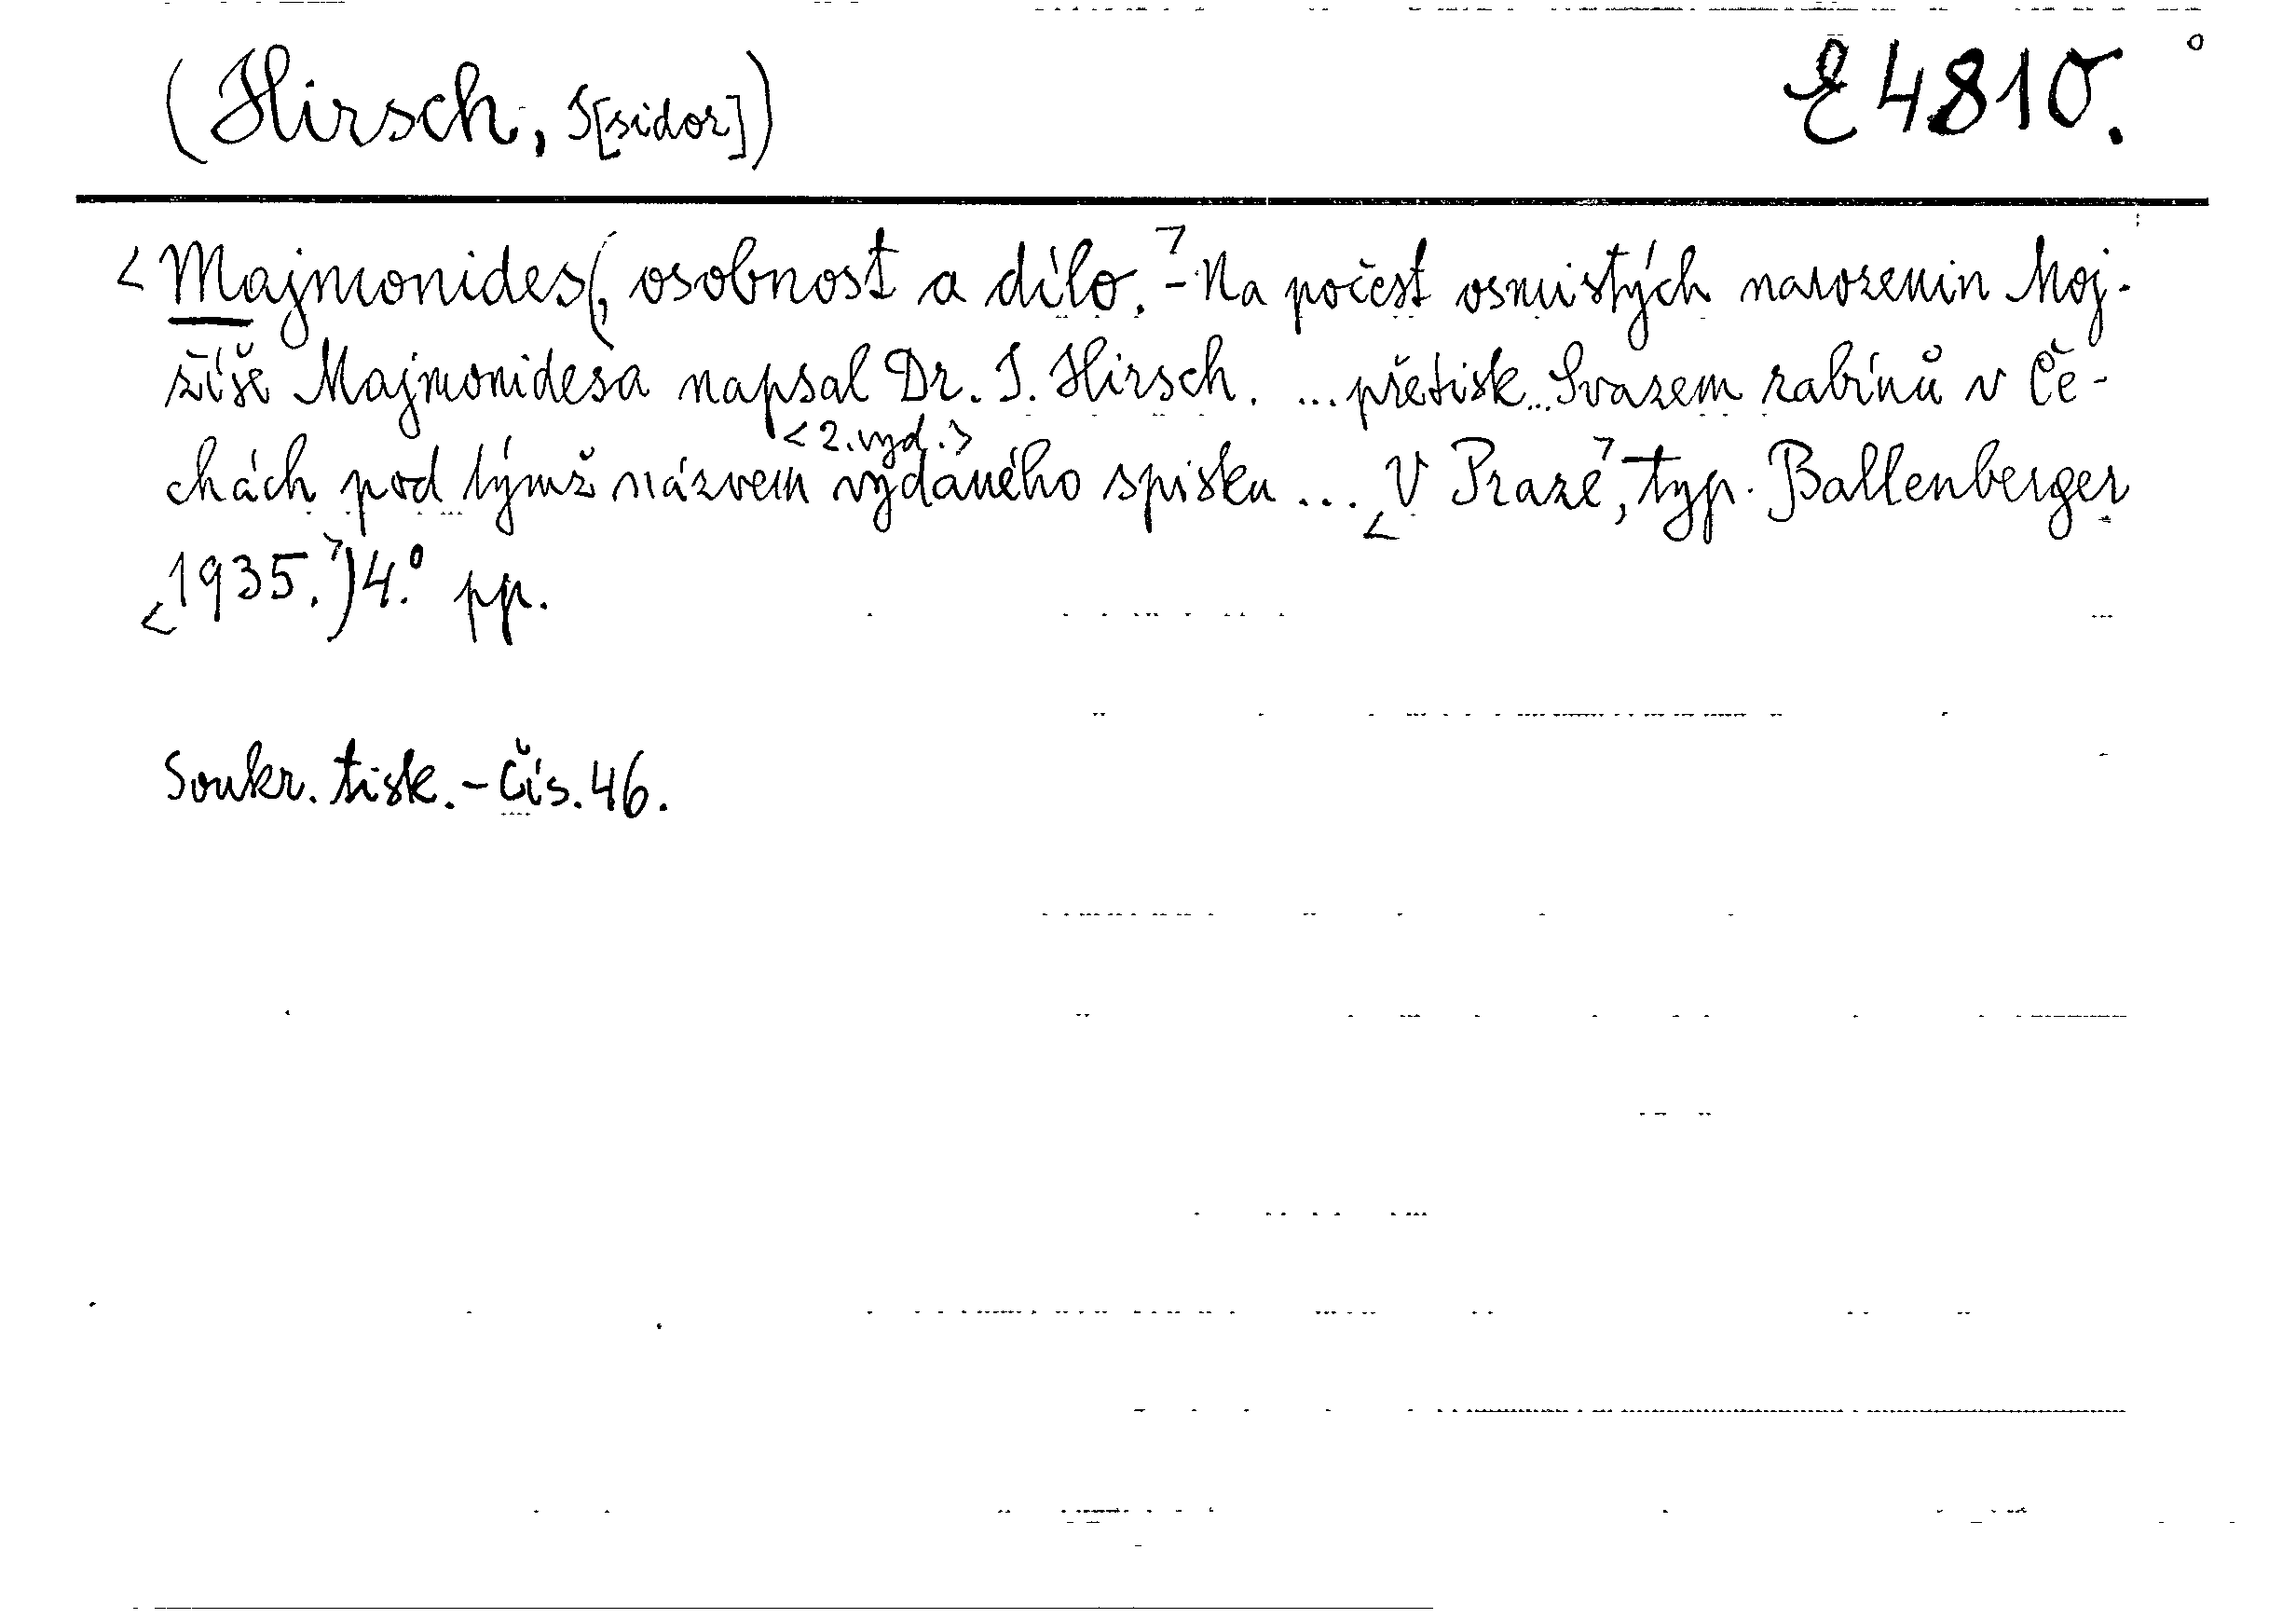 (Hirsch, I[sidor])
E 4810.
<Majmonides(, osobnost a dílo.> - Na počest osmistých narozenin Moj-
žíše Majmonidesa napsal Dr. I. Hirsch. ... přetisk... Svazem rabínů v Če-
<2. vyd.>
chách pod týmž názvem vydaného spisku ... <V Praze>, typ. Ballenberger
<1935.>) 4.° pp.
Soukr. tisk. - Čís. 46.